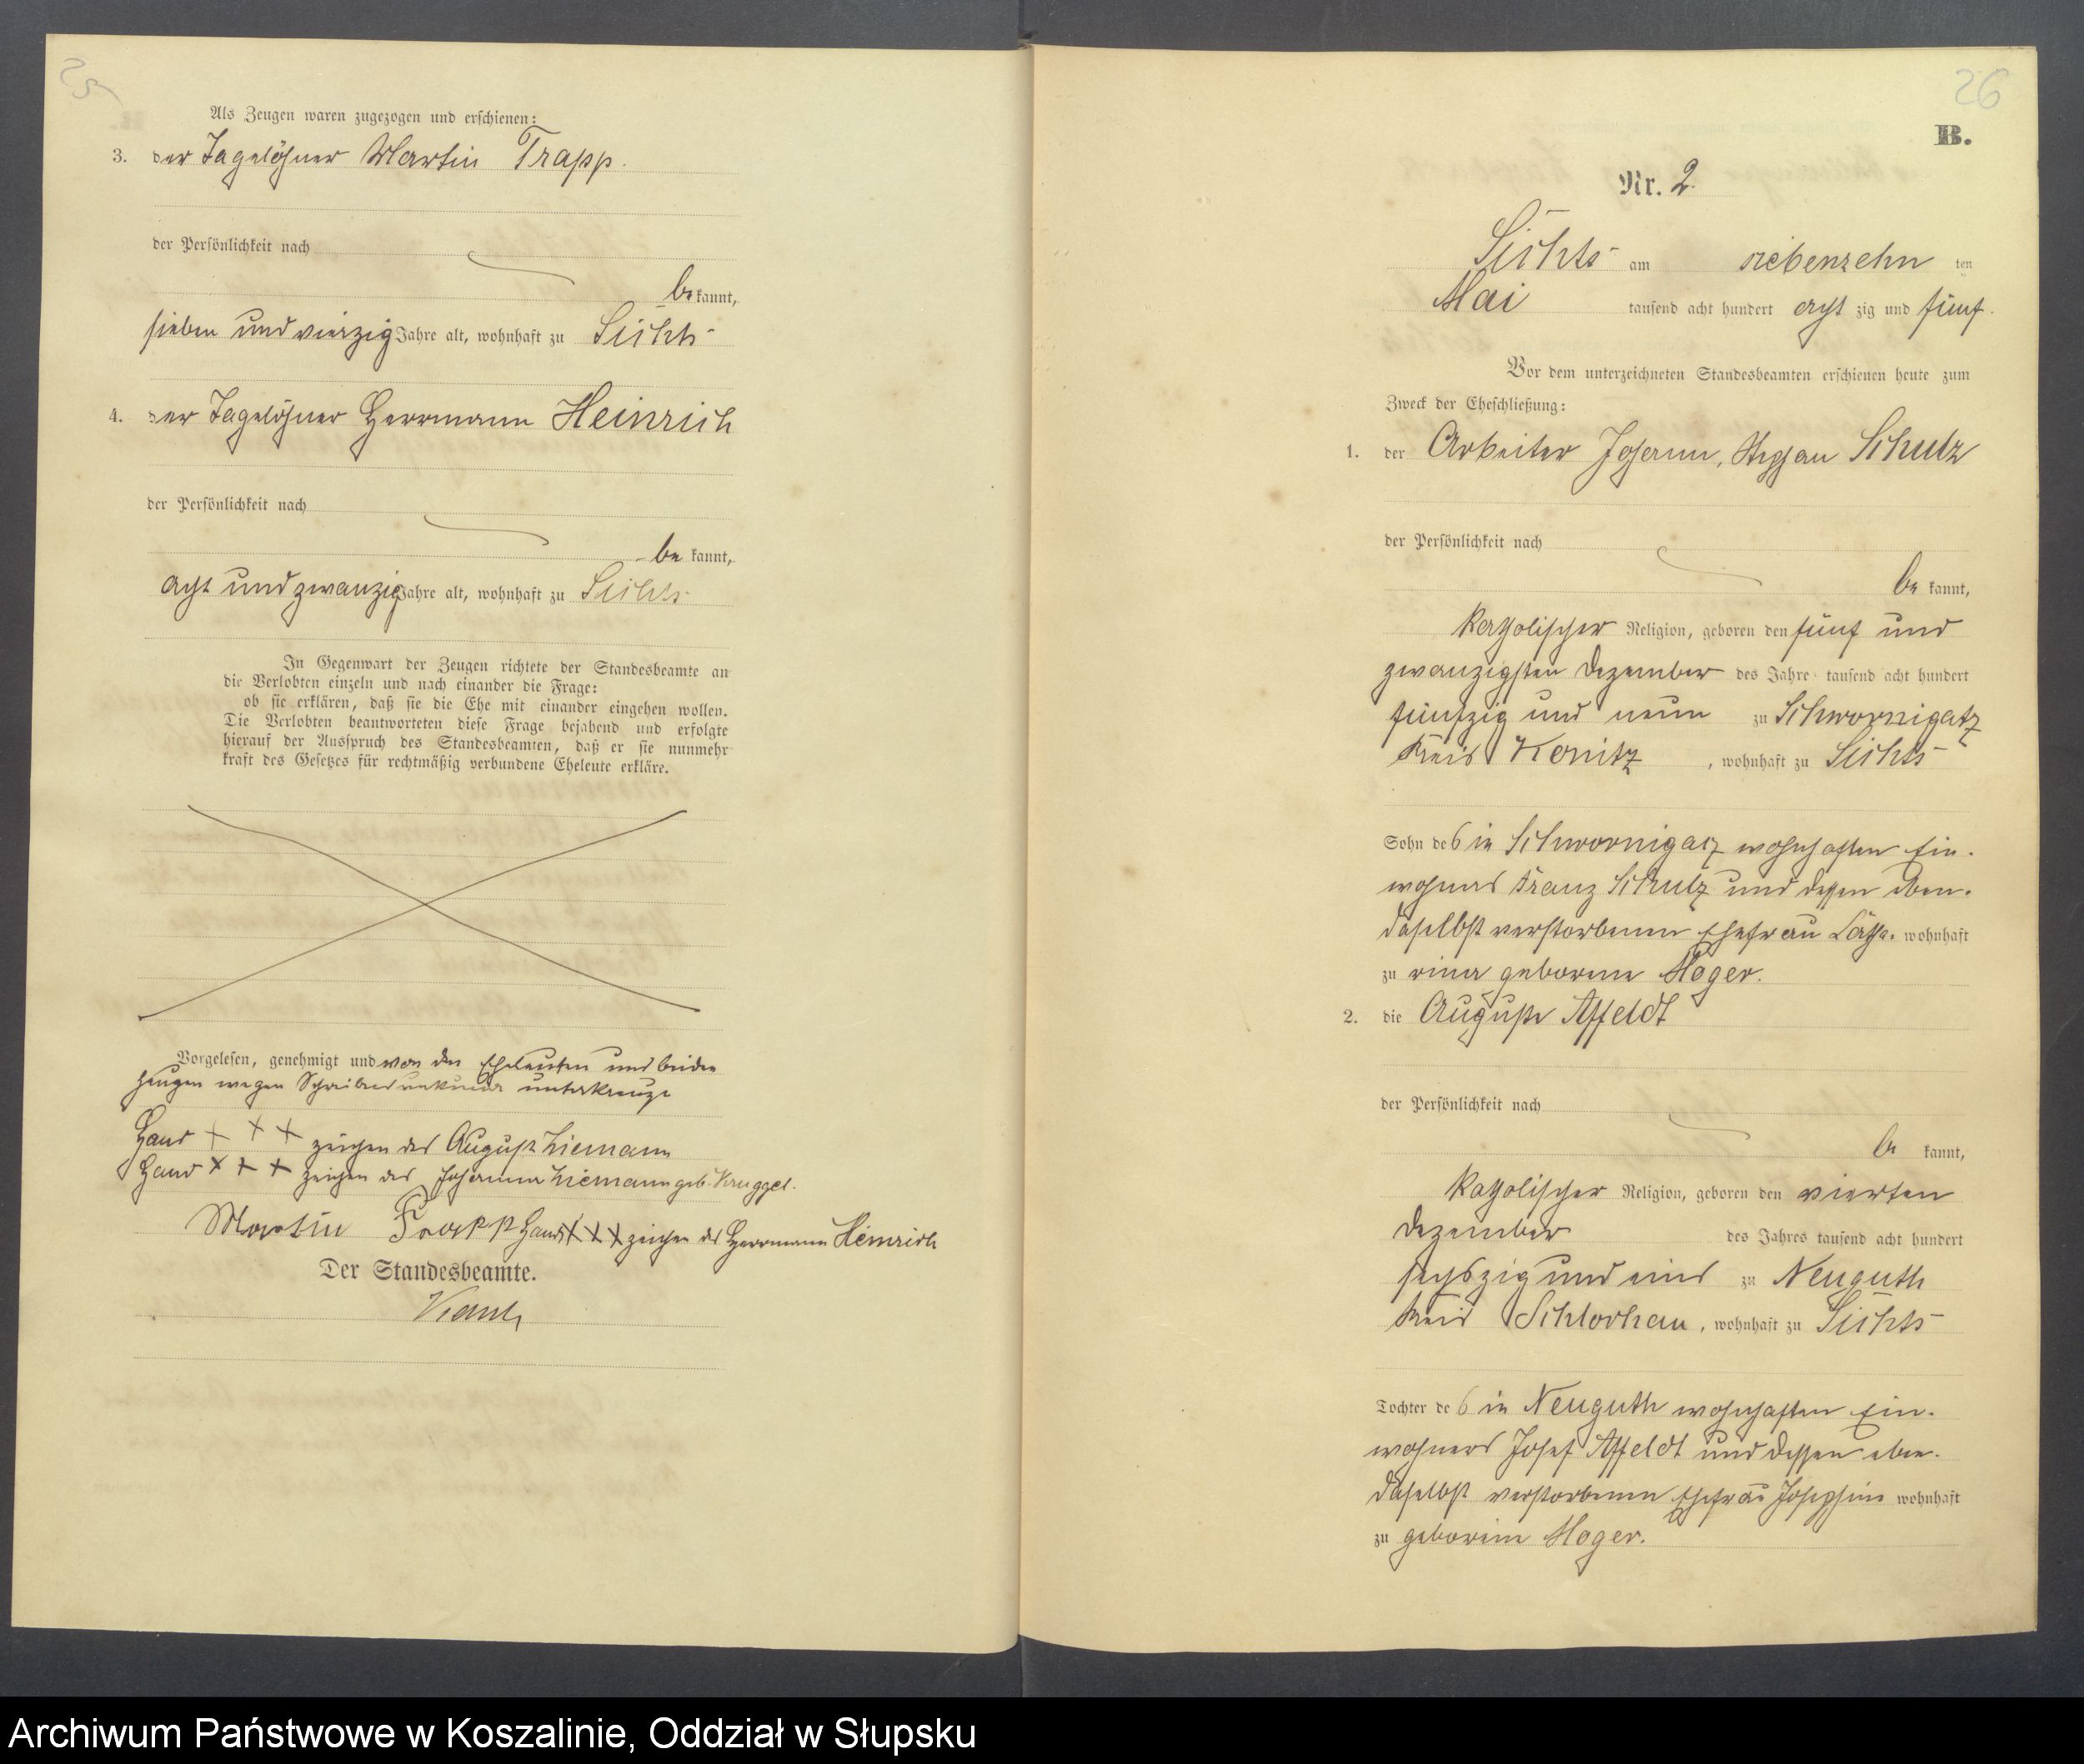 25
Als Zeugen waren zugezogen und erschienen:
3. der Tagelöhner Martin Trapp.
der Persönlichkeit nach
bekannt,
sieben und vierzig Jahre alt, wohnhaft zu
4. der Tagelöhner Herrmann Heinrich
der Persönlichkeit nach
be kannt,
acht und zwanzig Jahre alt, wohnhaft zu
In Gegenwart der Zeugen richtete der Standesbeamte an
die Verlobten einzeln und nach einander die Frage:
ob sie erklären, daß sie die Ehe mit einander eingehen wollen.
Die Verlobten beantworteten diese Frage bejahend und erfolgte
hierauf der Ausspruch des Standesbeamten, daß er sie nunmehr
kraft des Gesetzes für rechtmäßig verbundene Eheleute erkläre.
Vorgelesen, genehmigt und von den Eheleuten und beiden
Zeugen wegen Schreibensunkunde unterkreuzt
Hand + + + zeichen des August Ziemann
Hand + + + zeichen der Johanna Ziemann geb. Kruggel.
Martin Trapp Hand + + + zeichen des Herrmann Heinrich
Der Standesbeamte.
26
B.
Nr. 2.
am siebenzehn ten
Mai tausend acht hundert acht zig und fünf.
Vor dem unterzeichneten Standesbeamten erschienen heute zum
Zweck der Eheschließung:
1. der Arbeiter Johann, Stephan Schulz
der Persönlichkeit nach
be kannt,
katholischer Religion, geboren den fünf und
zwanzigsten Dezember des Jahre tausend acht hundert
fünfzig und neun zu Schwornigatz
Kreis Konitz, wohnhaft zu
Sohn des in Schwornigatz wohnhaften Ein-
wohners Franz Schulz und dessen eben-
daselbst verstorbenen Ehefrau Catha- wohnhaft
zu rina geborene Hoger.
2. die Auguste Affeldt
der Persönlichkeit nach
be kannt,
katholischer Religion, geboren den vierten
Dezember des Jahres tausend acht hundert
sechszig und eins zu Neuguth
Kreis Schlochau, wohnhaft zu
Tochter des in Neuguth wohnhaften Ein-
wohners Josef Affeldt und dessen eben-
daselbst verstorbenen Ehefrau Josephine wohnhaft
zu geborene Hoger.
Archiwum Państwowe w Koszalinie, Oddział w Słupsku